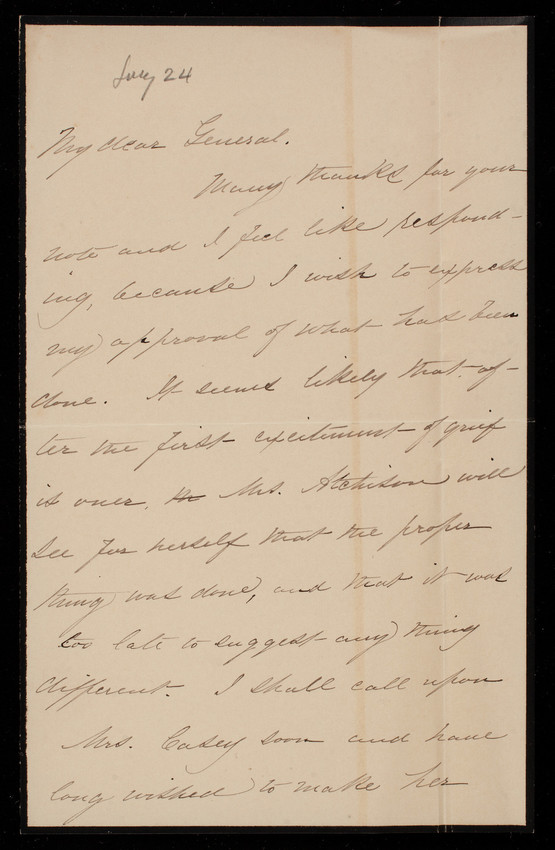 July 24
My dear General.
Many thanks for your
note and I feel like respond-
ing, because I wish to express
my approval of what has been
done. It seems likely that af-
ter the first excitement of grief
is over, Mrs. Atchison will
see for herself that the proper
thing was done, and that it was
too late to suggest any thing
different. I shall call upon
Mrs. Casey soon and have
long wished to make her